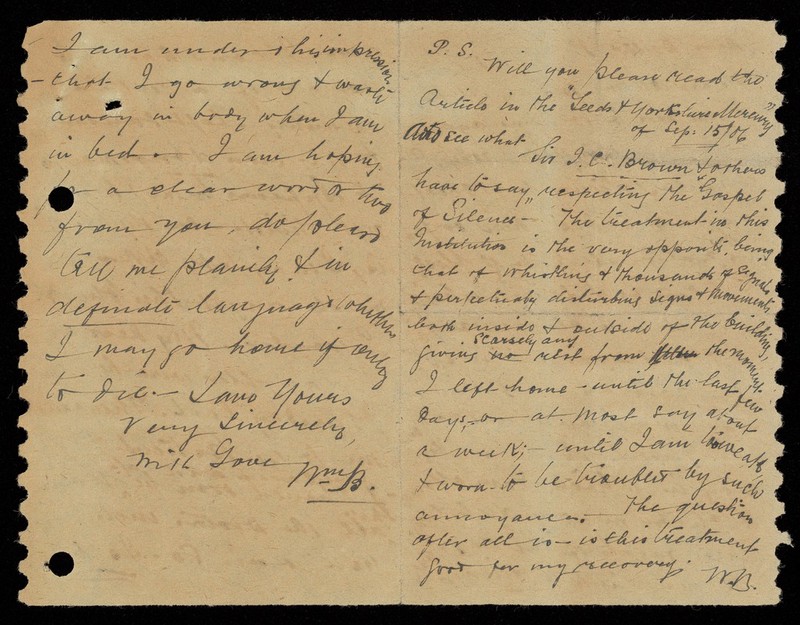 I am under this impression
- that I go wrong & waste
away in body when I am
in bed. I am hoping
for a clear word or two
from you, do please
tell me plainly & in
definate language whether
I may go home if only
to die. - I am Yours
Very Sincerely,
with Love
Wm B.
P.S.
Will you please read the
Article in the "Leeds & Yorkshire Mercury"
of Sep. 15/06
And see what
Sir J. C. Brown & others
have to say, respecting the "Gospel
of Silence - The treatment in this
Institution is the very opposite, being
that of whistling & thousands of signals,
& perfectly disturbing signs & movements
both inside & outside of the building,
scarsely any
giving no rest from the moment
I left home - until the last few
days, or at most say about
a week; - until I am too weak
& worn to be troubled by such
annoyances. The question
after all is - is this treatment
good for my recovery.
W.B.